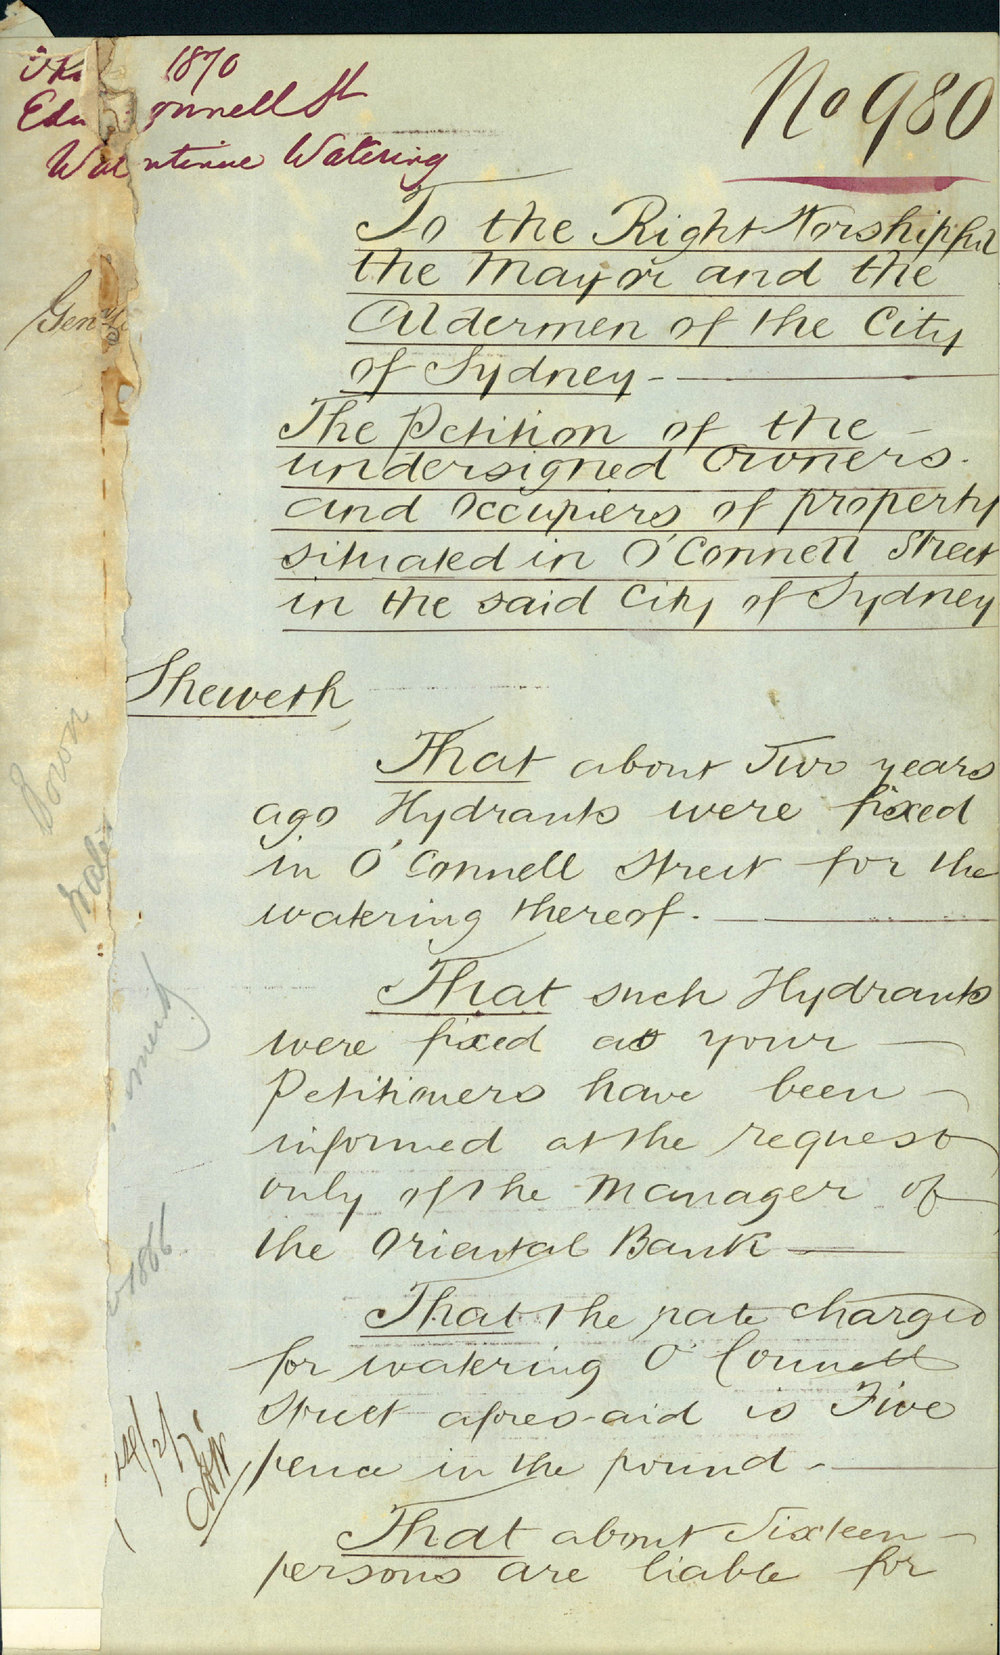 1870
No 980
onnell St
Watering
To the Right Worshipful
the Mayor and the
Aldermen of the City
of Sydney -
The Petition of the -
undersigned Owners.
and Occupiers of property
situated in O'Connell Street
in the said City of Sydney
Sheweth,
That about Two years
ago Hydrants were fixed
in O'Connell Street for the
watering thereof. -
That such Hydrants
were fixed as your -
Petitioners have been -
informed at the request
only of the Manager of
the Oriental Bank -
That the rate charged
for watering O'Connell
Street aforesaid is Five
pence in the pound -
That about Sixteen -
persons are liable for
1866